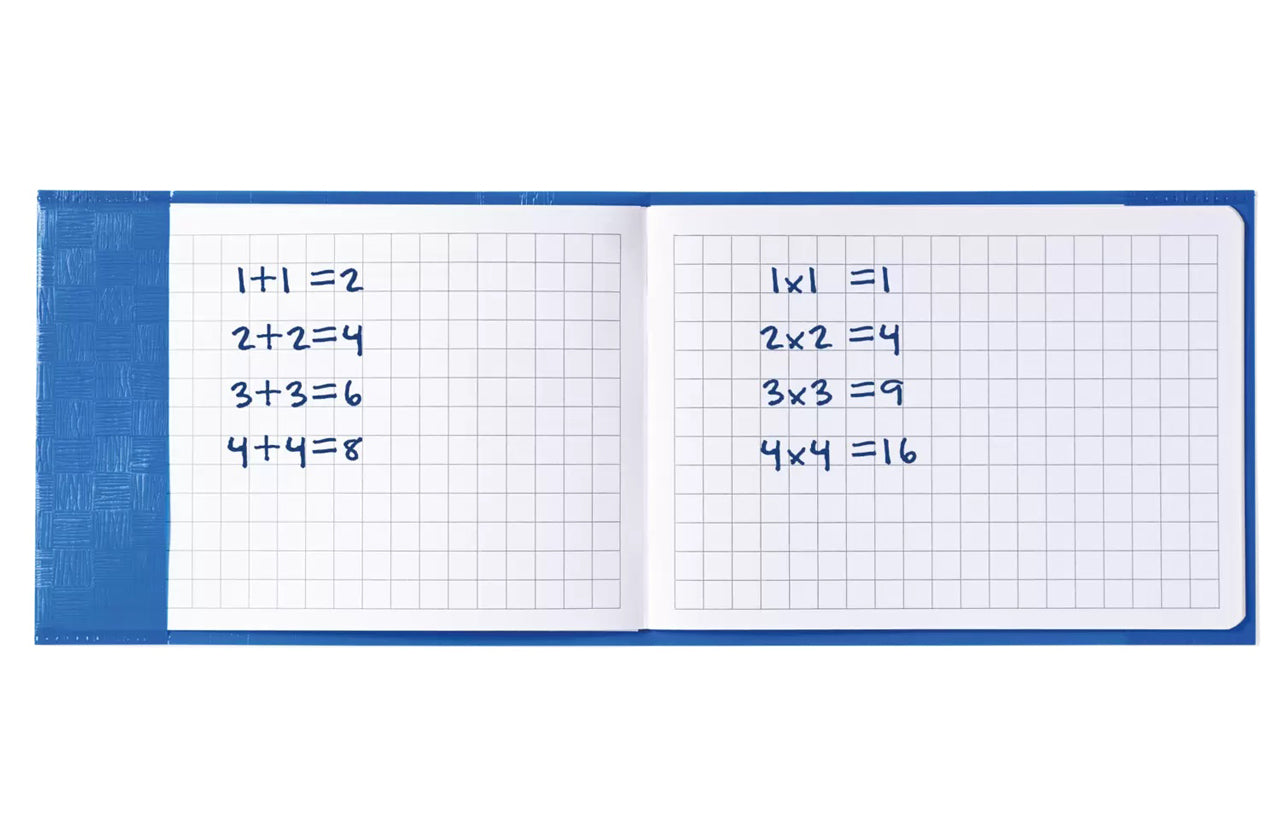 1+1 =2
2+2=4
3+3=6
4+4=8
1x1 =1
2x2 =4
3x3 =9
4x4 =16